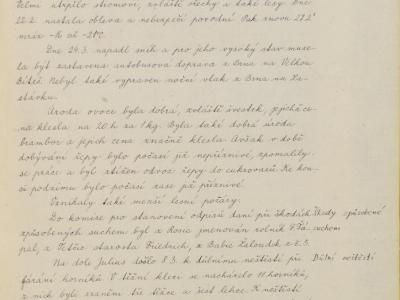 Velmi utrpělo stromoví, zvláště ořechy a také lesy. Dne
22.2. nastala obleva a nebezpečí povodní. Pak znovu 27.2.
mráz -16 až -21°C.
Dne 24.3. napadl sníh a pro jeho vysoký stav muse-
la být zastavena autobusová doprava z Brna na Velkou
Bíteš. Nebyl také vypraven noční vlak z Brna na Za-
stávku.
Úroda ovoce byla dobrá, zvláště švestek, jejichž ce-
na klesla na 20 h za 1 kg. Byla také dobrá úroda
brambor a jejich cena značně klesla. Avšak v době
dobývání řepy bylo počasí již nepříznivé, zpomalily
se práce a byl ztížen odvoz řepy do cukrovarů. Ke kon-
ci podzimu bylo počasí zase již příznivé.
Vznikaly také menší lesní požáry.
Do komise pro stanovení odpisů daní při škodách škody způsobené
způsobených suchem byl z Rosic jmenován rolník suchem
pal, z Tetčic starosta Friedrich, z Babic Zaloudek z č. 5.
Na dole Julius došlo 8.3. k důlnímu neštěstí při
fárání horníků. V těžní kleci se nacházelo 11 horníků,
z nich byli zraněni tři těžce a šest lehce. K neštěstí